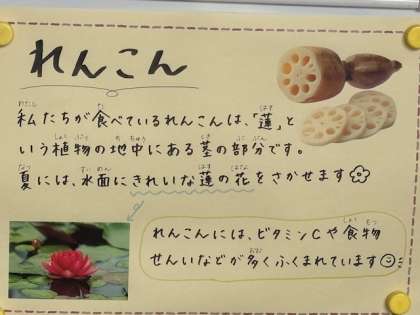 れんこん
私たちが食べているれんこんは、「蓮」と
いう植物の地中にある茎の部分です。
夏には、水面にきれいな蓮の花をさかせます
れんこんには、ビタミンCや食物
せんいなどが多くふくまれています